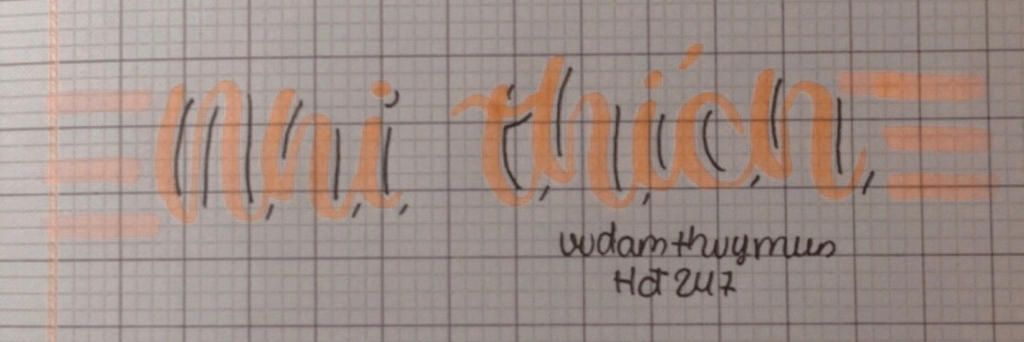 Nhi thích
vudamthuymun
Hd 247